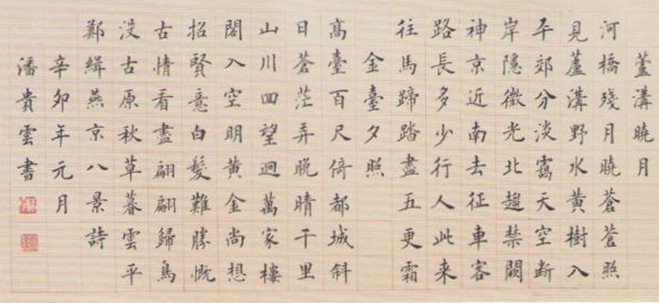 蘆溝曉月
河橋殘月曉蒼蒼照
見蘆溝野水黃樹入
平郊分淡靄天空斷
岸隱微光北趨禁闕
神京近南去征車客
路長多少行人此來
往馬蹄踏盡五更霜
金臺夕照
高臺百尺倚都城斜
日蒼茫弄晚晴千里
山川回望迥萬家樓
閣入空明黃金尚想
招賢意白髮難勝慨
古情看盡翩翩歸鳥
沒古原秋草暮雲平
鄭緝燕京八景詩
辛卯年元月
潘貴雲書